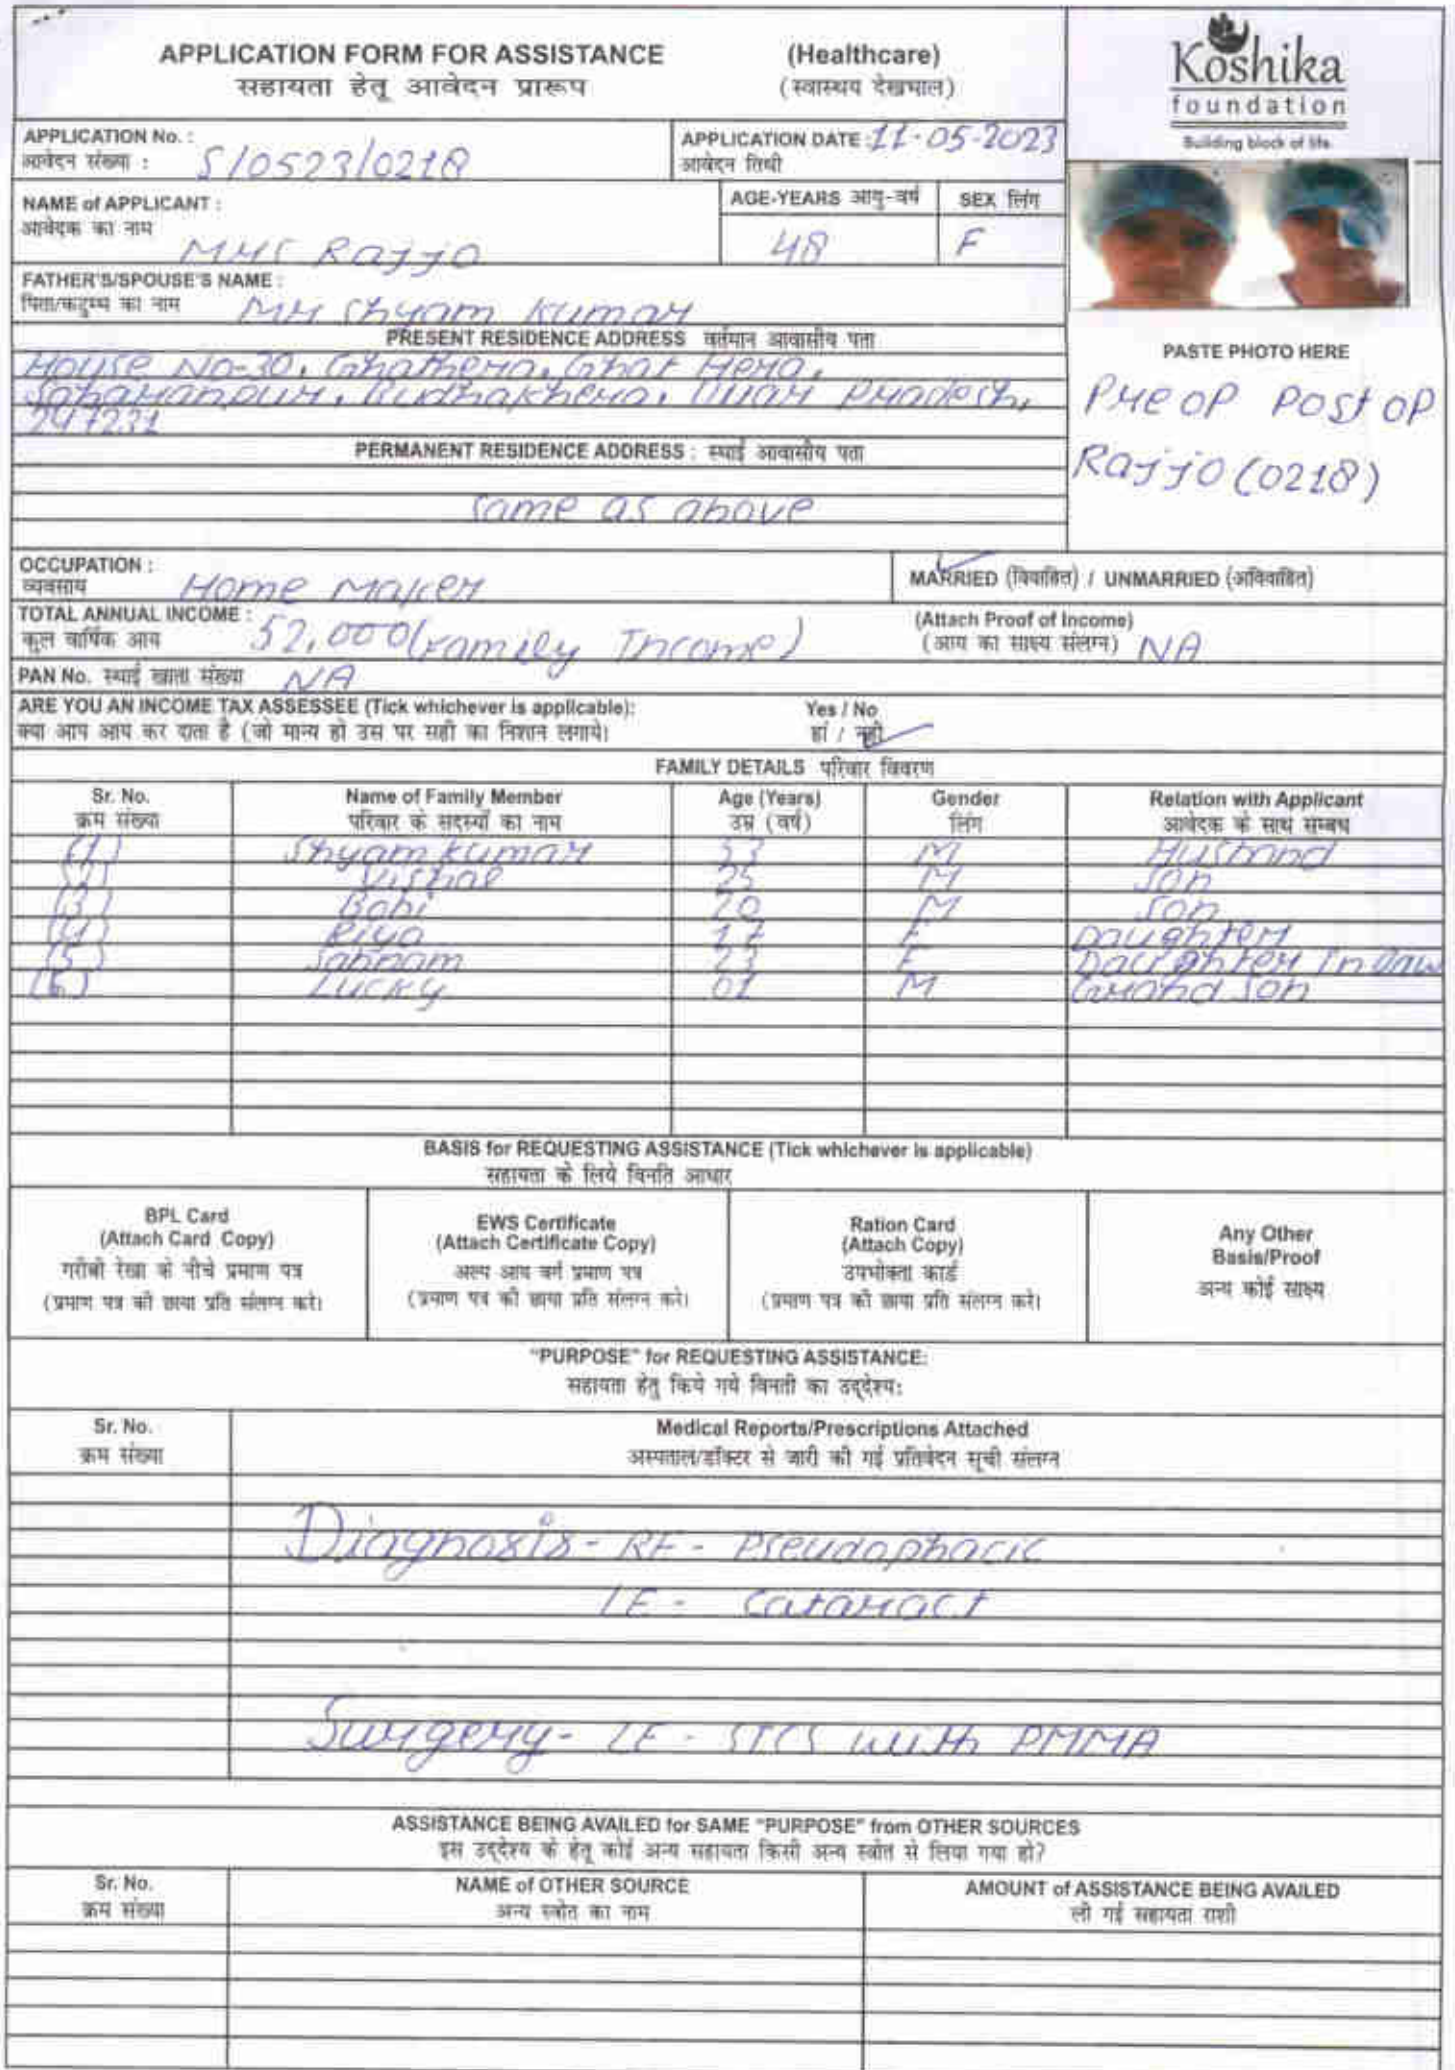 APPLICATION FORM FOR ASSISTANCE (Healthcare)
सहायता हेतू आवेदन प्रारूप (स्वास्थय देखभाल)
Koshika
foundation
Building block of life
APPLICATION No. :
आवेदन संख्या : S/0523/0218
APPLICATION DATE : 11-05-2023
आवेदन तिथी
NAME of APPLICANT :
आवेदक का नाम Mrs Rajjo
AGE-YEARS आयु-वर्ष 48
SEX लिंग F
FATHER'S/SPOUSE'S NAME :
पिता/कटुम्ब का नाम Mr Shyam Kumar
PRESENT RESIDENCE ADDRESS वर्तमान आवासीय पता
House No-30, Ghathera, Ghat Hera,
Saharanpur, Pradesh,
247231
PERMANENT RESIDENCE ADDRESS : स्थाई आवासीय पता
same as above
PASTE PHOTO HERE
Pre OP Post OP
Rajjo (0218)
OCCUPATION :
व्यवसाय Home Maker
MARRIED (विवाहित) / UNMARRIED (अविवाहित)
TOTAL ANNUAL INCOME :
कुल वार्षिक आय 52,000 (Family Income)
(Attach Proof of Income)
(आय का साक्ष्य संलग्न) NA
PAN No. स्थाई खाता संख्या NA
ARE YOU AN INCOME TAX ASSESSEE (Tick whichever is applicable): Yes / No
क्या आप आय कर दाता है (जो मान्य हो उस पर सही का निशान लगाये। हां / नही
FAMILY DETAILS परिवार विवरण
Sr. No. Name of Family Member Age (Years) Gender Relation with Applicant
क्रम संख्या परिवार के सदस्यों का नाम उम्र (वर्ष) लिंग आवेदक के साथ सम्बध
(1) Shyam Kumar 53 M Husband
Vishal 25 M Son
(3) Bobi 20 M Son
(4) Riya 17 F Daughter
(5) Sabnam 23 F Daughter In law
(6) Lucky 01 M Grand Son
BASIS for REQUESTING ASSISTANCE (Tick whichever is applicable)
सहायता के लिये विनति आधार
BPL Card
(Attach Card Copy)
गरीबी रेखा के नीचे प्रमाण पत्र
(प्रमाण पत्र की छाया प्रति संलग्न करे।
EWS Certificate
(Attach Certificate Copy)
अल्प आय वर्ग प्रमाण पत्र
(प्रमाण पत्र की छाया प्रति संलग्न करे।
Ration Card
(Attach Copy)
उपभोक्ता कार्ड
(प्रमाण पत्र की छाया प्रति संलग्न करे।
Any Other
Basis/Proof
अन्य कोई साक्ष्य
"PURPOSE" for REQUESTING ASSISTANCE:
सहायता हेतु किये गये विनती का उद्देश्य:
Sr. No. Medical Reports/Prescriptions Attached
क्रम संख्या अस्पताल/डॉक्टर से जारी की गई प्रतिवेदन सूची संलग्न
Diagnosis - RE - Pseudophacic
LE - Cataract
Surgery - LE - SICS with PMMA
ASSISTANCE BEING AVAILED for SAME "PURPOSE" from OTHER SOURCES
इस उद्देश्य के हेतू कोई अन्य सहायता किसी अन्य स्त्रोत से लिया गया हो?
Sr. No. NAME of OTHER SOURCE AMOUNT of ASSISTANCE BEING AVAILED
क्रम संख्या अन्य स्त्रोत का नाम ली गई सहायता राशी